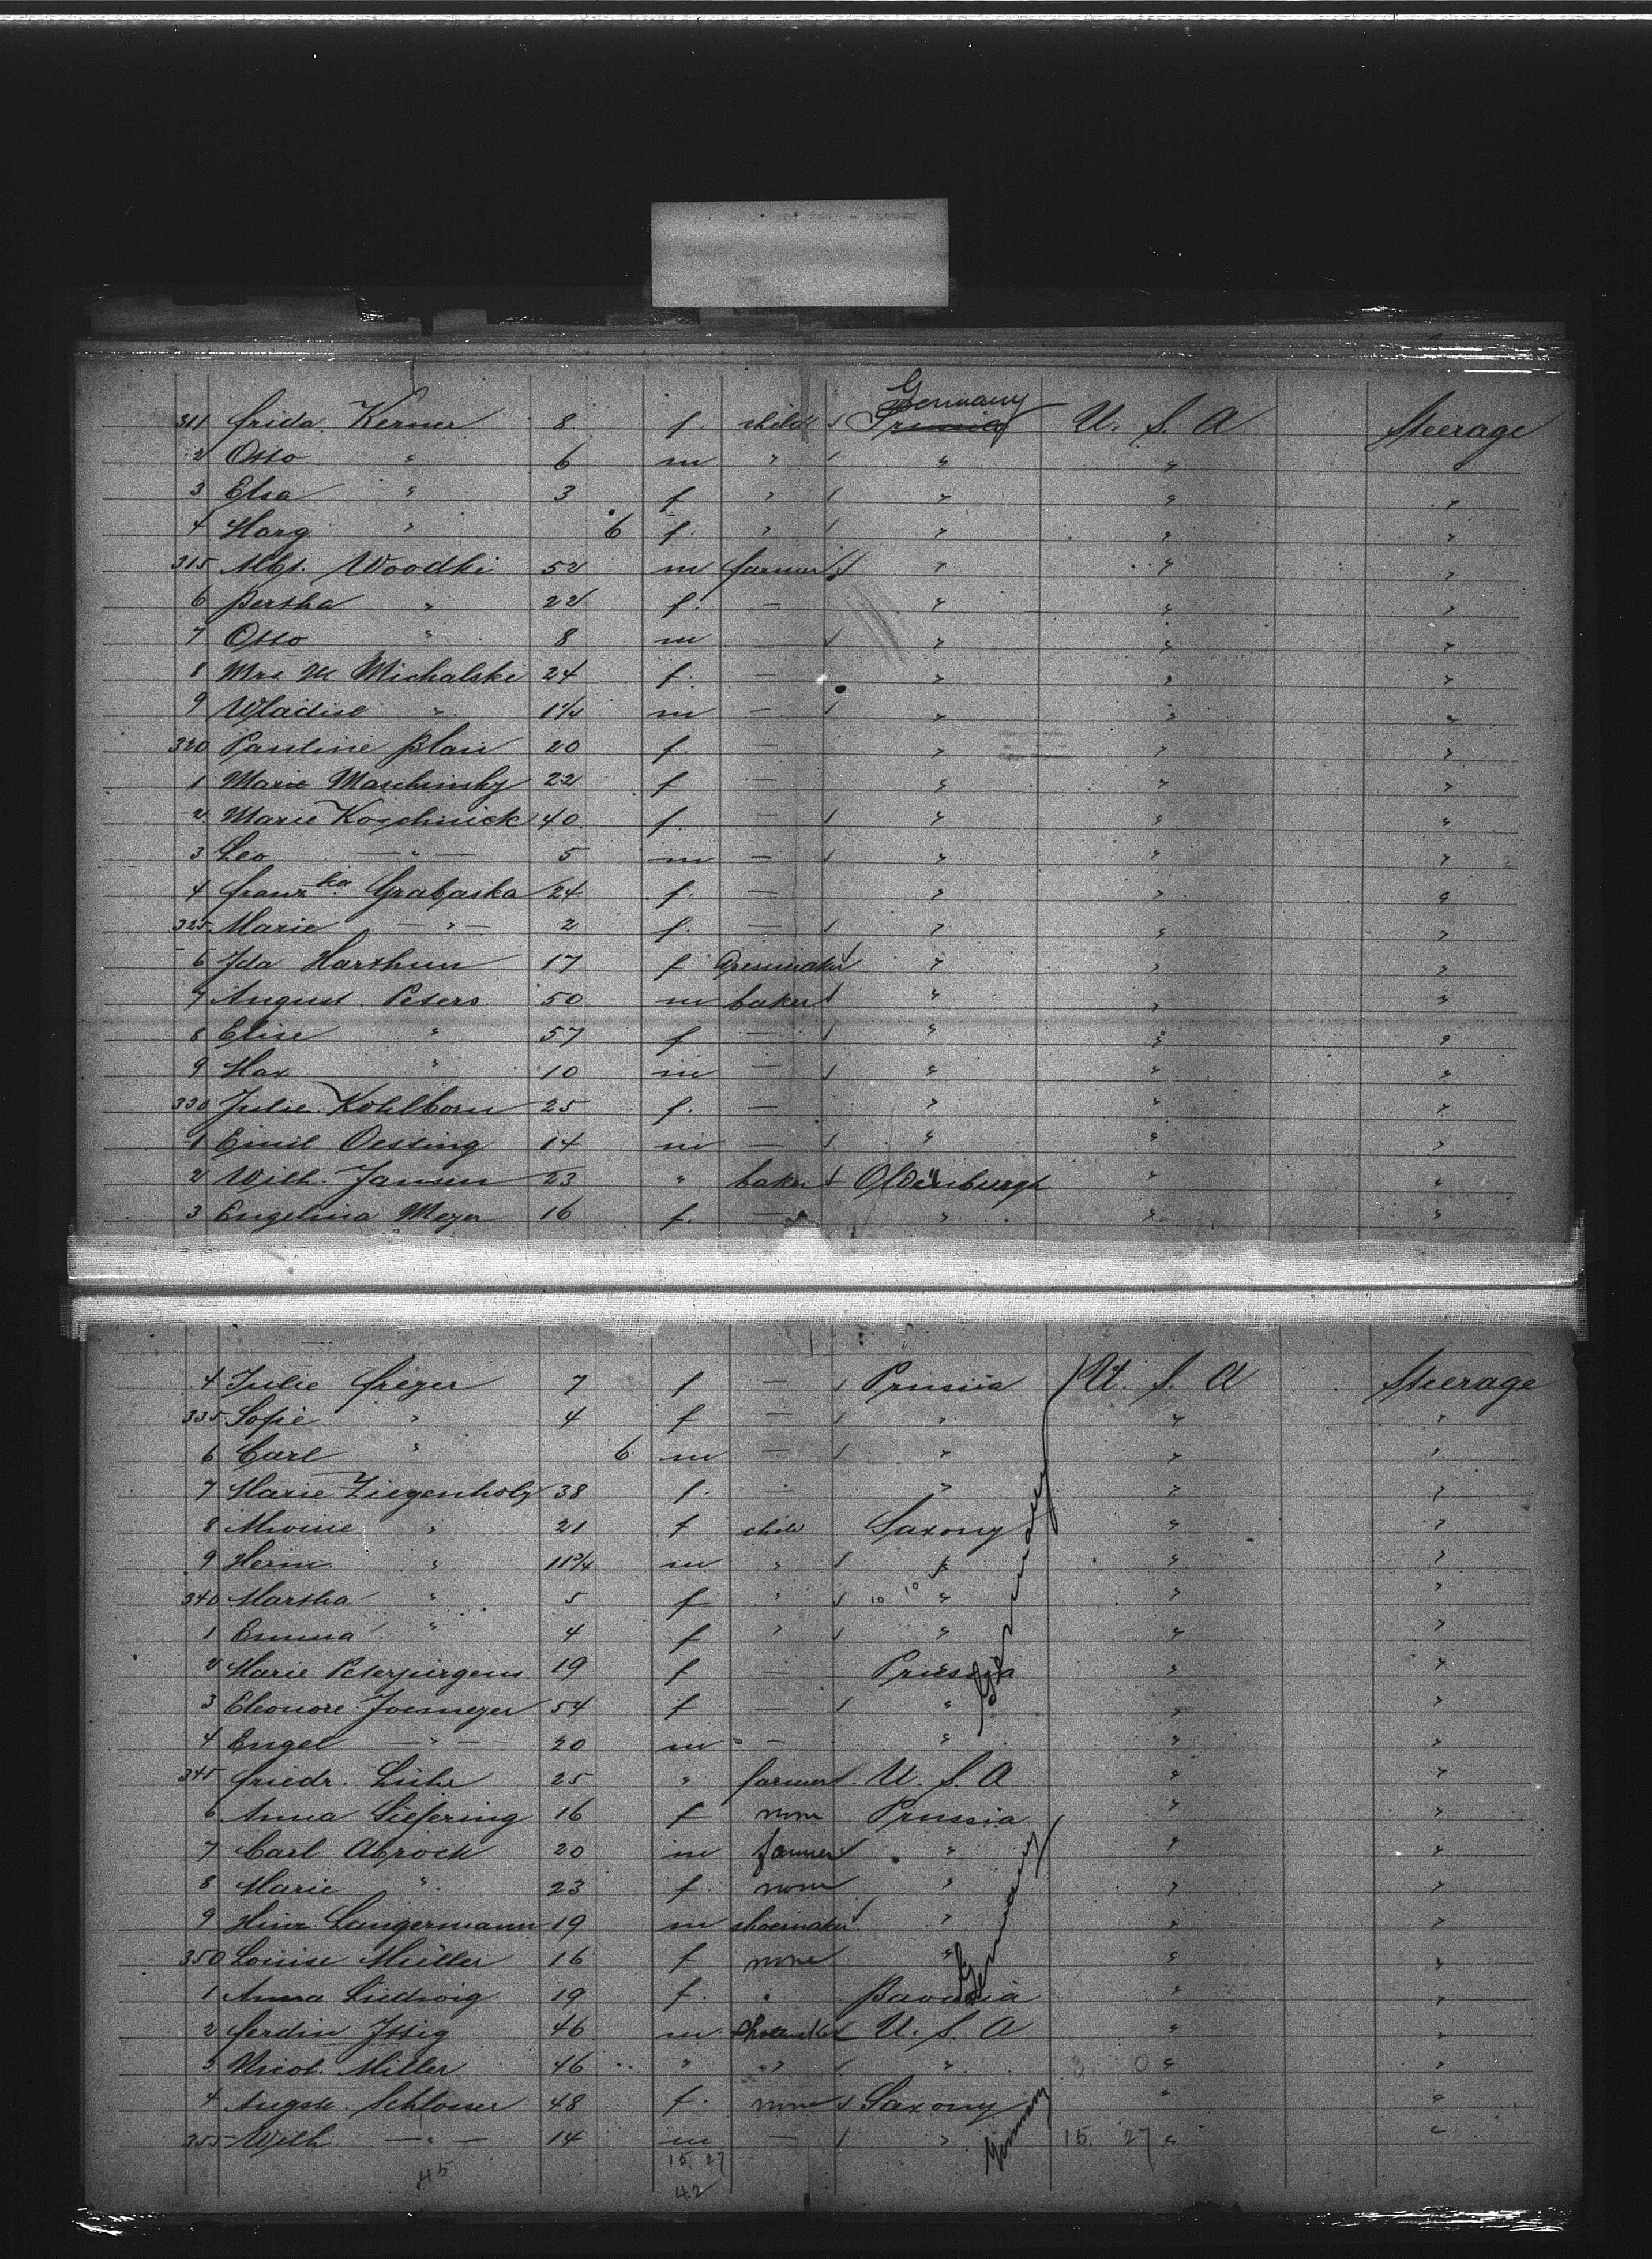 Germany
311 Frida Kerner 8 f. child Prussia U. S. A Steerage
2 Otto " 6 m " " " "
3 Elsa " 3 f " " " "
4 Marg " 6 f. " " " "
315 Alb. Woodtki 52 m farmer " " "
6 Bertha " 22 f. — " " "
7 Otto " 8 m — " " "
8 Mrs M Michalski 24 f. — " " "
9 Wladisl " 1¼ m — " " "
320 Pauline Blau 20 f. — " " "
1 Marie Maschinsky 22 f — " " "
2 Marie Koschnick 40 f. — " " "
3 Leo — " — 5 m — " " "
4 Franzka Grabaska 24 f. — " " "
325 Marie — " — 2 f. — " " "
6 Ida Harthun 17 f Dressmaker " " "
7 August Peters 50 m baker " " "
8 Elise " 57 f — " " "
9 Max " 10 m — " " "
330 Julie Kohlborn 25 f. — " " "
1 Emil Oesting 14 m — " " "
2 Wilh. Jansen 23 " baker Oldenburgh " "
3 Engelina Meyer 16 f. — " " "
4 Julie Greger 7 f — Prussia U. S. A Steerage
335 Sofie " 4 f — " " "
6 Carl " 6 m — " " "
7 Marie Ziegenholz 38 f. — " " "
8 Alwine " 21 f child Saxony " "
9 Herm " 11¾ m " " " "
340 Martha " 5 f " 10 10 " " "
1 Emma " 4 f " " " "
2 Marie Peterjürgens 19 f — Prussia " "
3 Eleonore Joemeyer 54 f — " " "
4 Engel — " — 20 m — " " "
Germany
345 Friedr. Lühr 25 " farmer U. S. A " "
6 Anna Siefering 16 f none Prussia " "
7 Carl Abrock 20 m farmer " " "
8 Marie " 23 f. none " " "
9 Hinr. Langermann 19 m shoemaker " " "
350 Louise Müller 16 f none " " "
1 Anna Ludwig 19 f. " Bavaria " "
Germany
2 Ferdin Itzig 46 m shoemaker U. S. A " "
3 Nicol. Miller 46 " " " 3 0 " "
4 Auguste Schlosser 48 f. none Saxony " "
355 Wilh — " — 14 m — " 15. 27 " "
Germany
45 15. 27
42